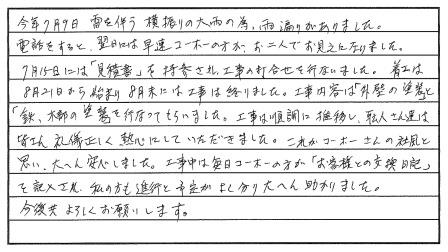 今年7月9日 雷を伴う 横振りの大雨の為、雨漏りがありました。
電話をすると、翌日には早速コーホーの方が、お二人でお見えになりました。
7月15日には「見積書」を持参され、工事の打合せを行ないました。 着工は
8月21日から始まり 8月末には工事は終りました。工事内容は「外壁の塗装」と
「鉄、木部の塗装を行なってもらいました。工事は順調に推移し、職人さん達は
皆さん 礼儀正しく 熱心にしていただきました。これがコーホーさんの社風と
思い、大へん安心しました。工事中は毎日コーホーの方が「お客様との交換日記」
を記入され、私の方も進行と予定がよく分り大へん助かりました。
今後共よろしくお願いします。